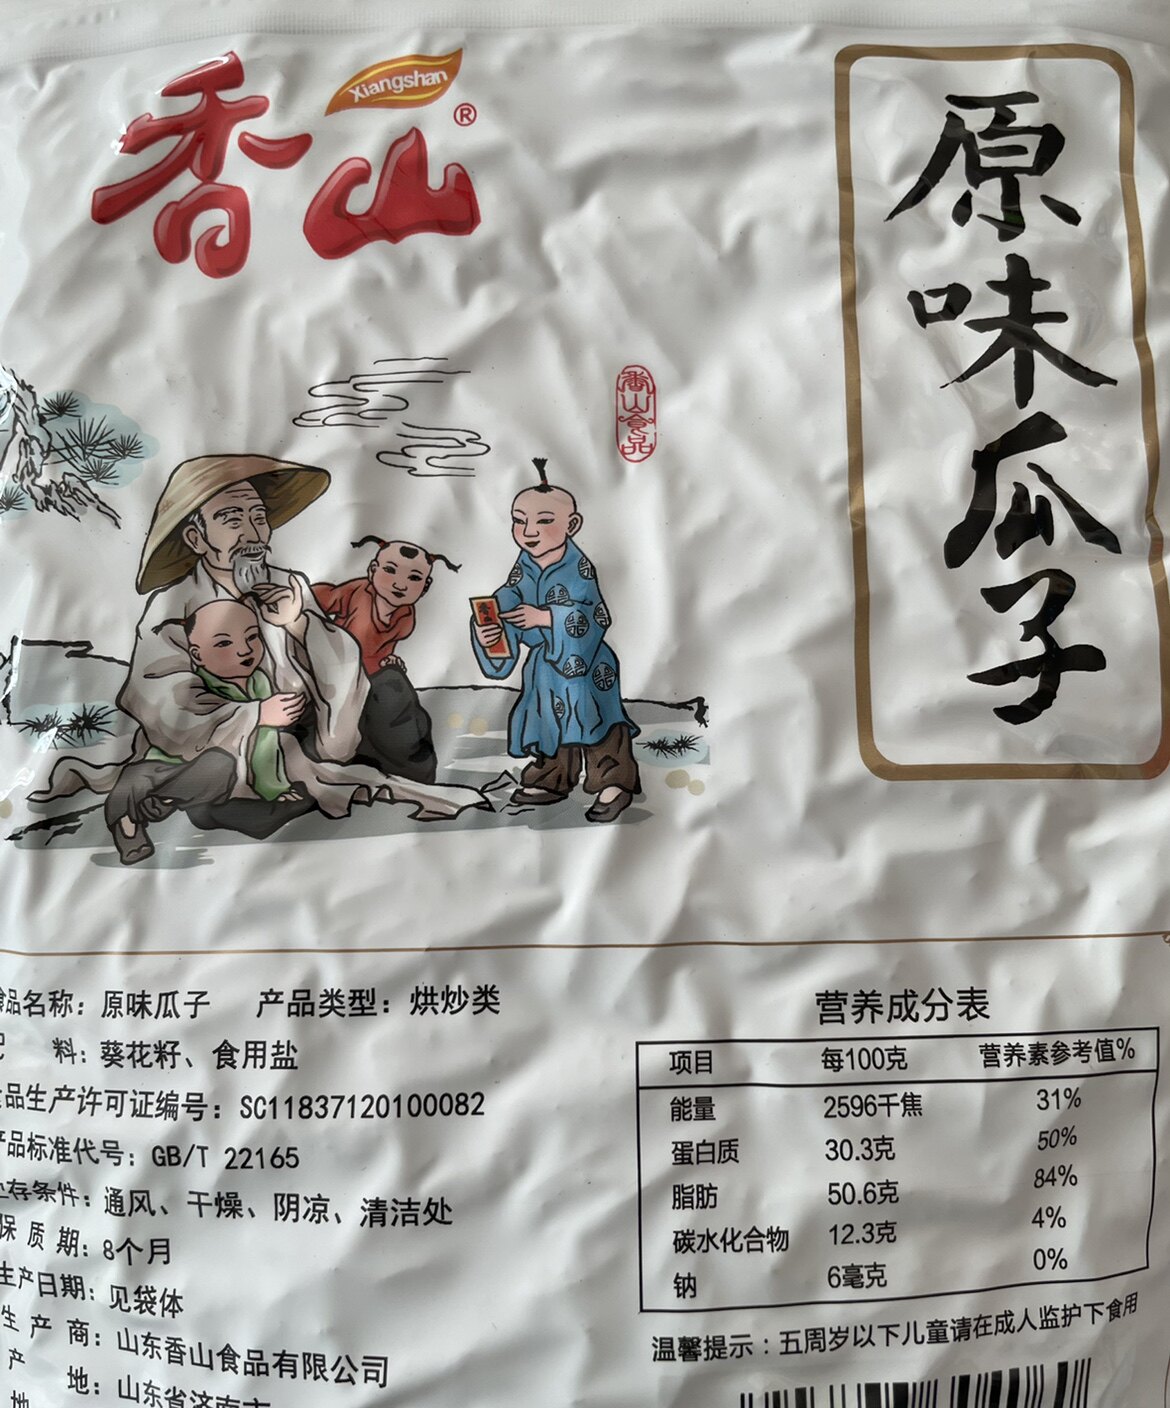 Xiangshan
香山®
原味瓜子
香山食品
食品名称：原味瓜子 产品类型：烘炒类
料：葵花籽、食用盐
食品生产许可证编号：SC11837120100082
产品标准代号：GB/T 22165
存条件：通风、干燥、阴凉、清洁处
保质期：8个月
生产日期：见袋体
生产商：山东香山食品有限公司
产地：山东省济南市
地
营养成分表
项目 每100克 营养素参考值%
能量 2596千焦 31%
蛋白质 30.3克 50%
脂肪 50.6克 84%
碳水化合物 12.3克 4%
钠 6毫克 0%
温馨提示：五周岁以下儿童请在成人监护下食用